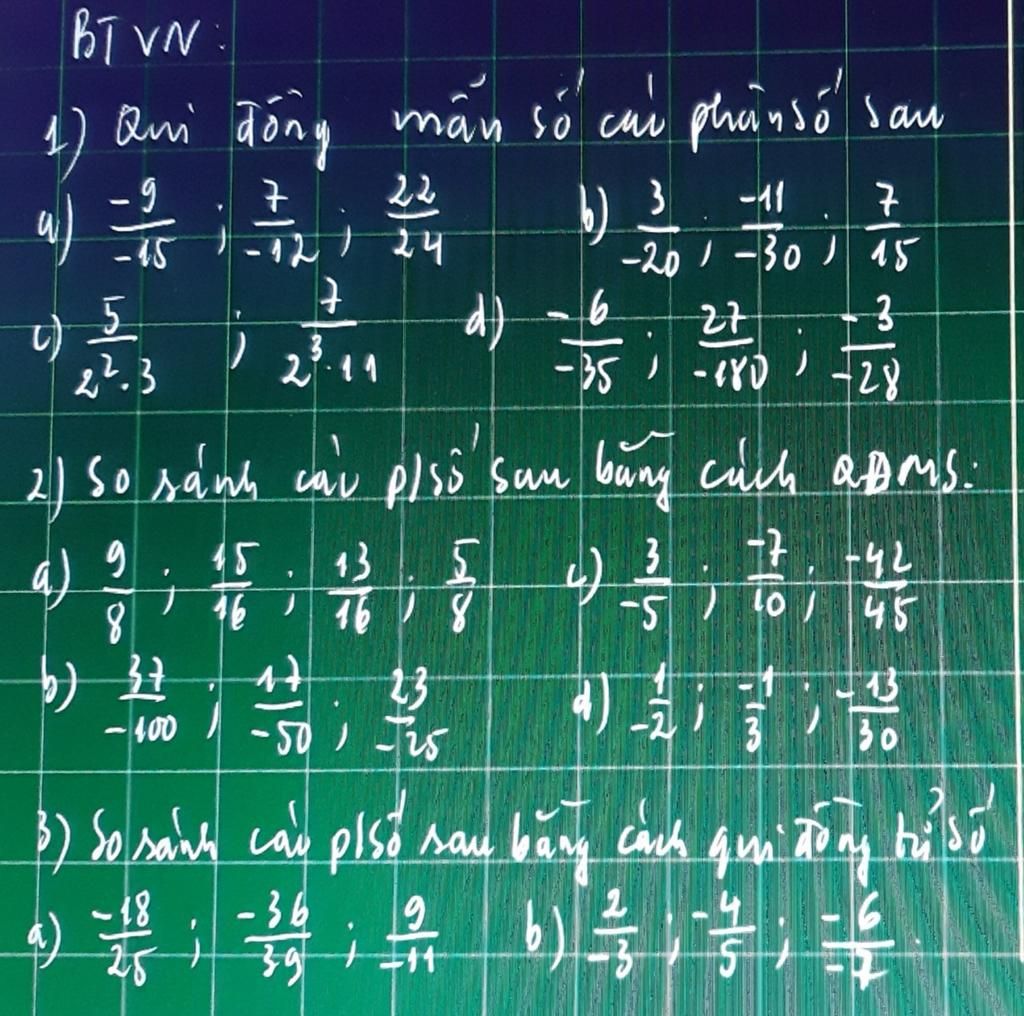 BTVN:
1) Qui đồng mẫu số các phân số sau
a) -9/-15 ; 7/-12 ; 22/24 b) 3/-20 ; -11/-30 ; 7/15
c) 5/2².3 ; 7/2³.11 d) -6/-35 ; 27/-180 ; -3/-28
2) So sánh các p/số sau bằng cách QĐMS:
a) 9/8 ; 15/16 ; 13/16 ; 5/8 c) 3/-5 ; -7/10 ; -42/45
b) 37/-100 ; 17/-50 ; 23/-25 d) 1/-2 ; -1/3 ; -13/30
3) So sánh các p/số sau bằng cách qui đồng tử số
a) -18/25 ; -36/39 ; 9/-11 b) 2/-3 ; -4/5 ; -6/-7